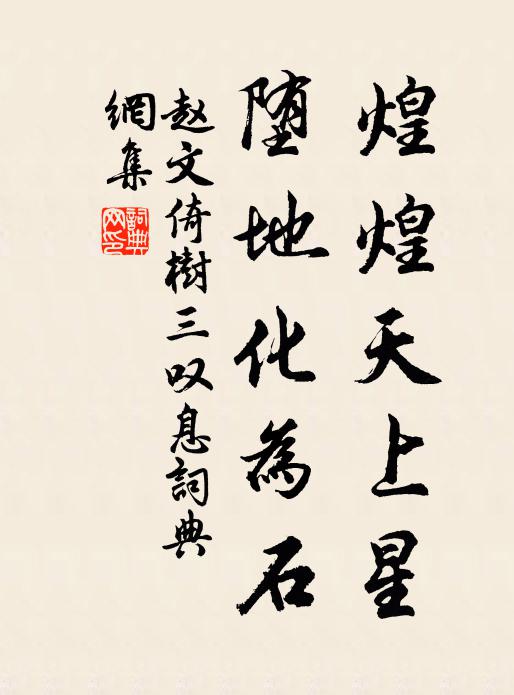 煌煌天上星
堕地化為石
赵文倚樹三叹息詞典
網集
詞典網印